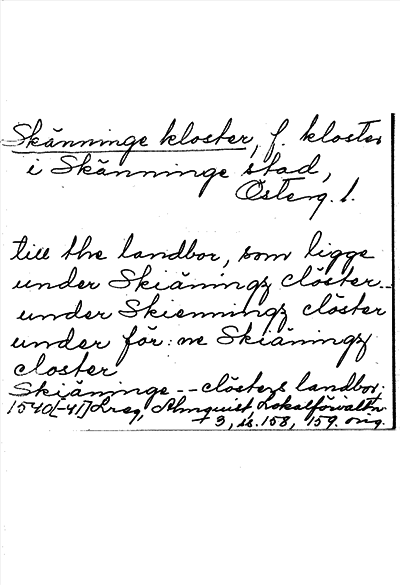 Skänninge kloster, f. kloster
i Skänninge stad,
Österg. l.
till the landbor, som ligge
under Skiäningz clöster --
under Skienningz clöster
under för:ne Skiäningz
closter
Skiäninge -- clösters landbor.
1540[-41] Lreg, Almquist, Lokalförvaltn
3, ss. 158, 159. orig.